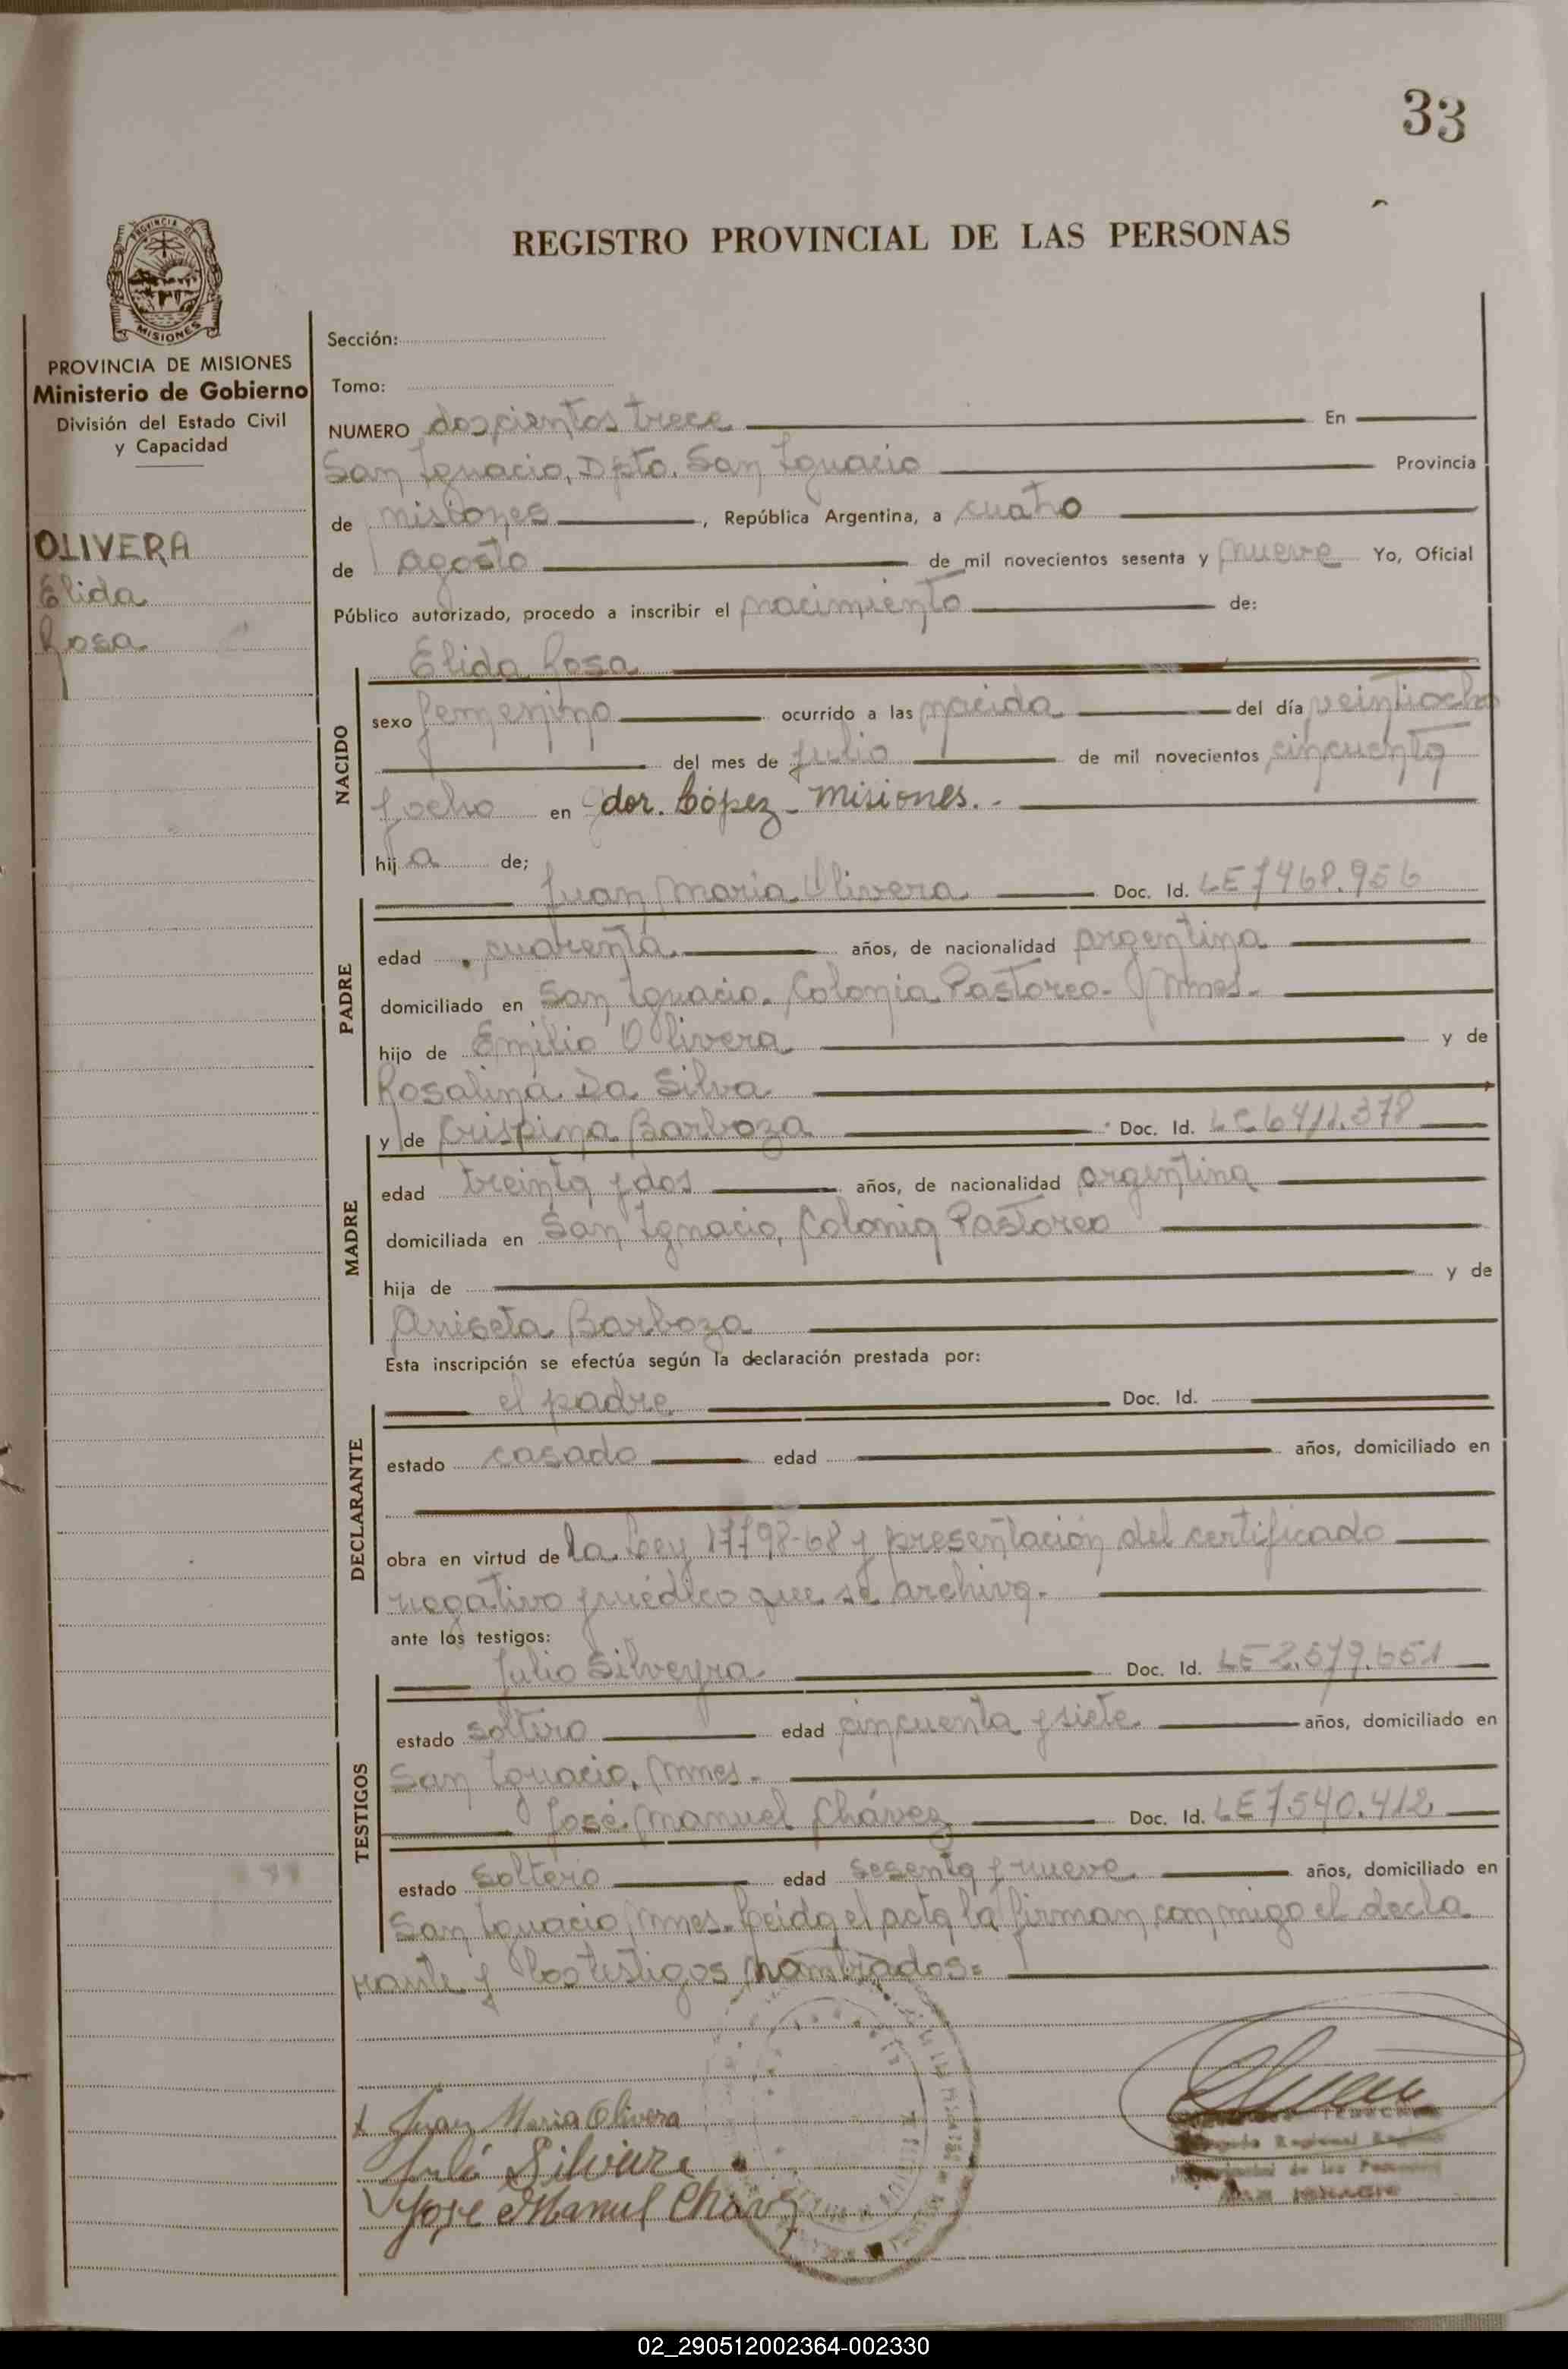 33
REGISTRO PROVINCIAL DE LAS PERSONAS
PROVINCIA DE
MISIONES
PROVINCIA DE MISIONES
Ministerio de Gobierno
División del Estado Civil
y Capacidad
OLIVERA
Elida
Rosa
Sección:
Tomo:
NUMERO doscientos trece En
San Ignacio, Dpto. San Ignacio Provincia
de Misiones, República Argentina, a cuatro
de agosto de mil novecientos sesenta y nueve Yo, Oficial
Público autorizado, procedo a inscribir el nacimiento de:
NACIDO
Elida Rosa
sexo femenino ocurrido a las nacida del día veintiocho
del mes de julio de mil novecientos cincuenta
y ocho en Gdor. López - Misiones.-
hija de;
PADRE
Juan María Olivera Doc. Id. LE 7468.956
edad cuarenta años, de nacionalidad argentina
domiciliado en San Ignacio. Colonia Pastoreo- Mnes.-
hijo de Emilio Olivera y de
Rosalina Da Silva
MADRE
y de Crispina Barboza Doc. Id. LC 6411.378
edad treinta y dos años, de nacionalidad argentina
domiciliada en San Ignacio, Colonia Pastoreo
hija de y de
Aniseta Barboza
Esta inscripción se efectúa según la declaración prestada por:
DECLARANTE
el padre Doc. Id.
estado casado edad años, domiciliado en
obra en virtud de la Ley 17798-68 y presentación del certificado
negativo y médico que se archiva.-
ante los testigos:
TESTIGOS
Julio Silveyra Doc. Id. LE 2.579.651
estado soltero edad cincuenta y siete años, domiciliado en
San Ignacio, Mnes.-
José Manuel Chávez Doc. Id. LE 7540.412
estado soltero edad sesenta y nueve años, domiciliado en
San Ignacio, Mnes. Leida el acta la firman conmigo el decla
rante y los testigos nombrados=
x Juan Maria Olivera
Jose Manuel Chavez
SAN IGNACIO
02_290512002364-002330